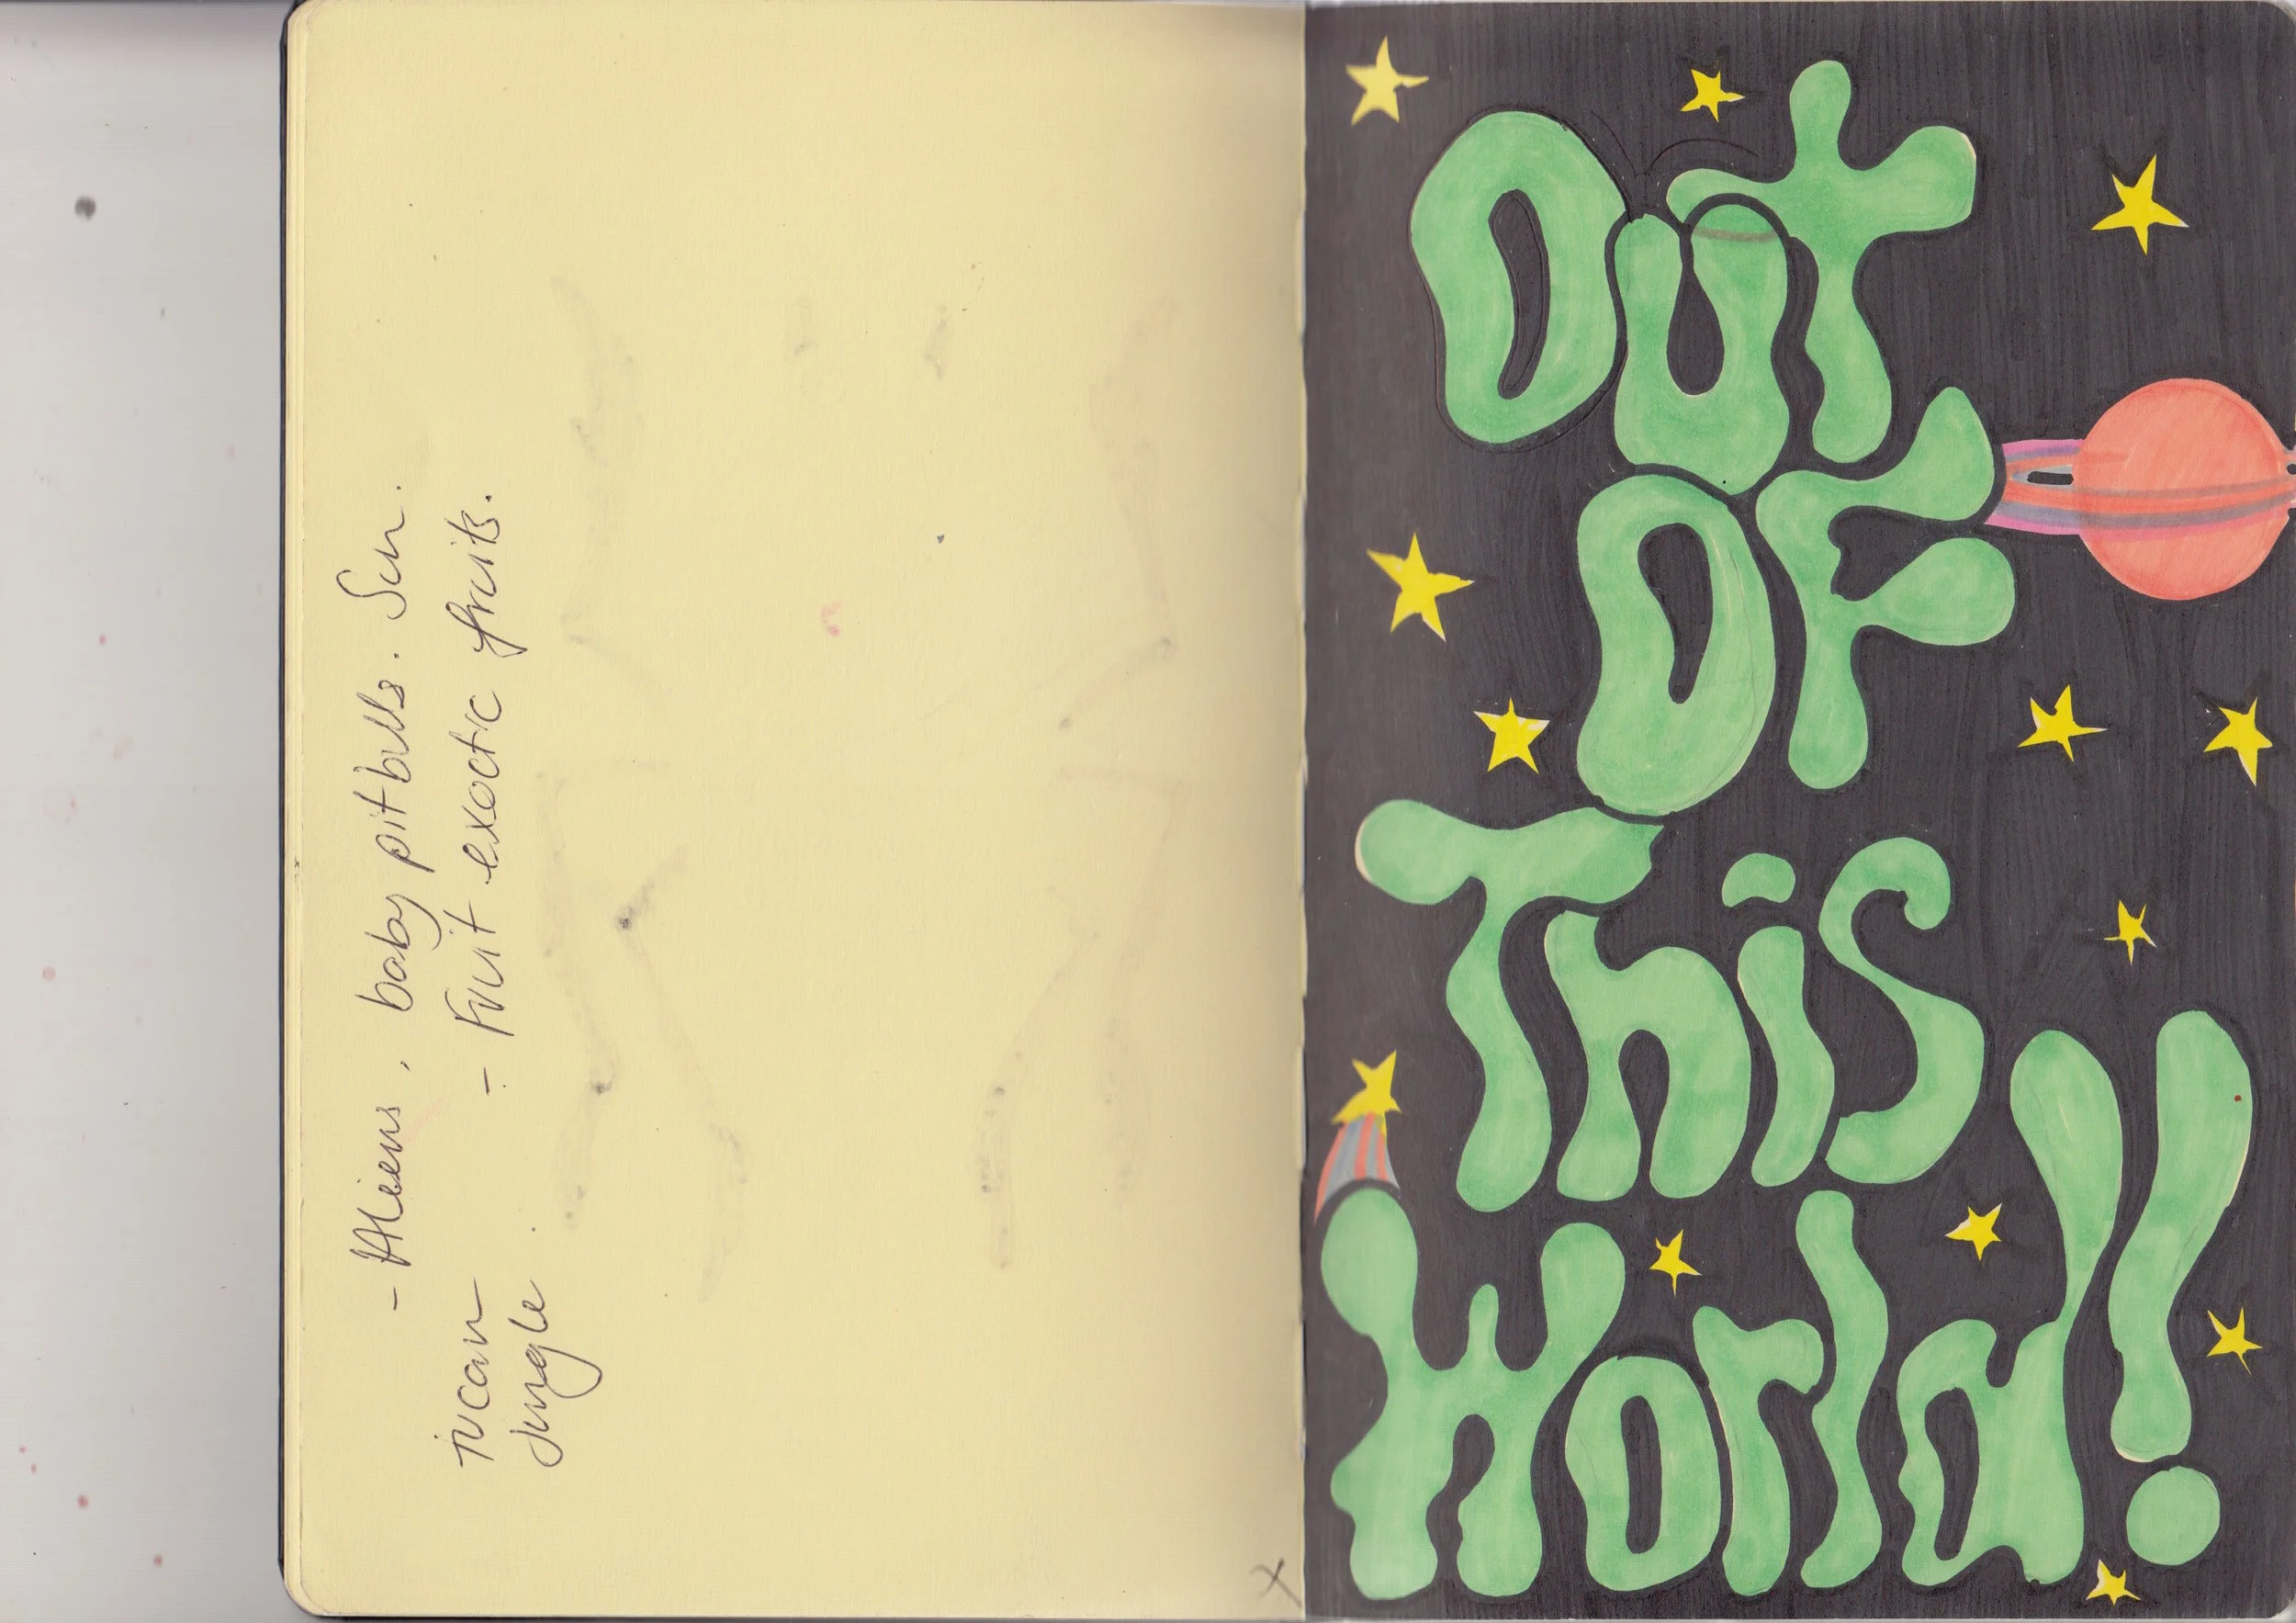 - Aliens, baby pitbulls. Sun.
- Fruit exoctc fruits.
tucan
jungle.
x
Out
OF
This
World!